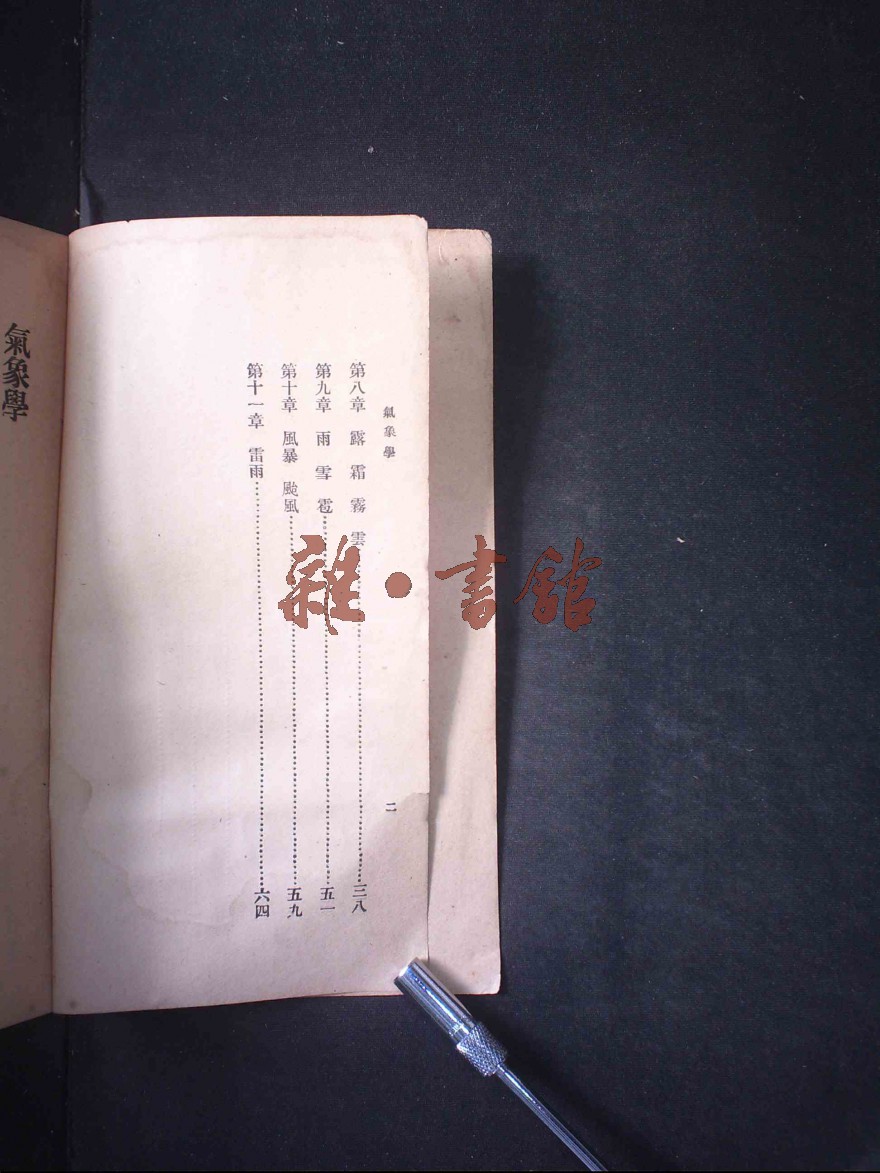 氣象學
二
第八章 露 霜 霧 雲……三八
第九章 雨 雪 雹……五一
第十章 風暴 颱風……五九
第十一章 雷雨……六四
氣象學
雜·書館